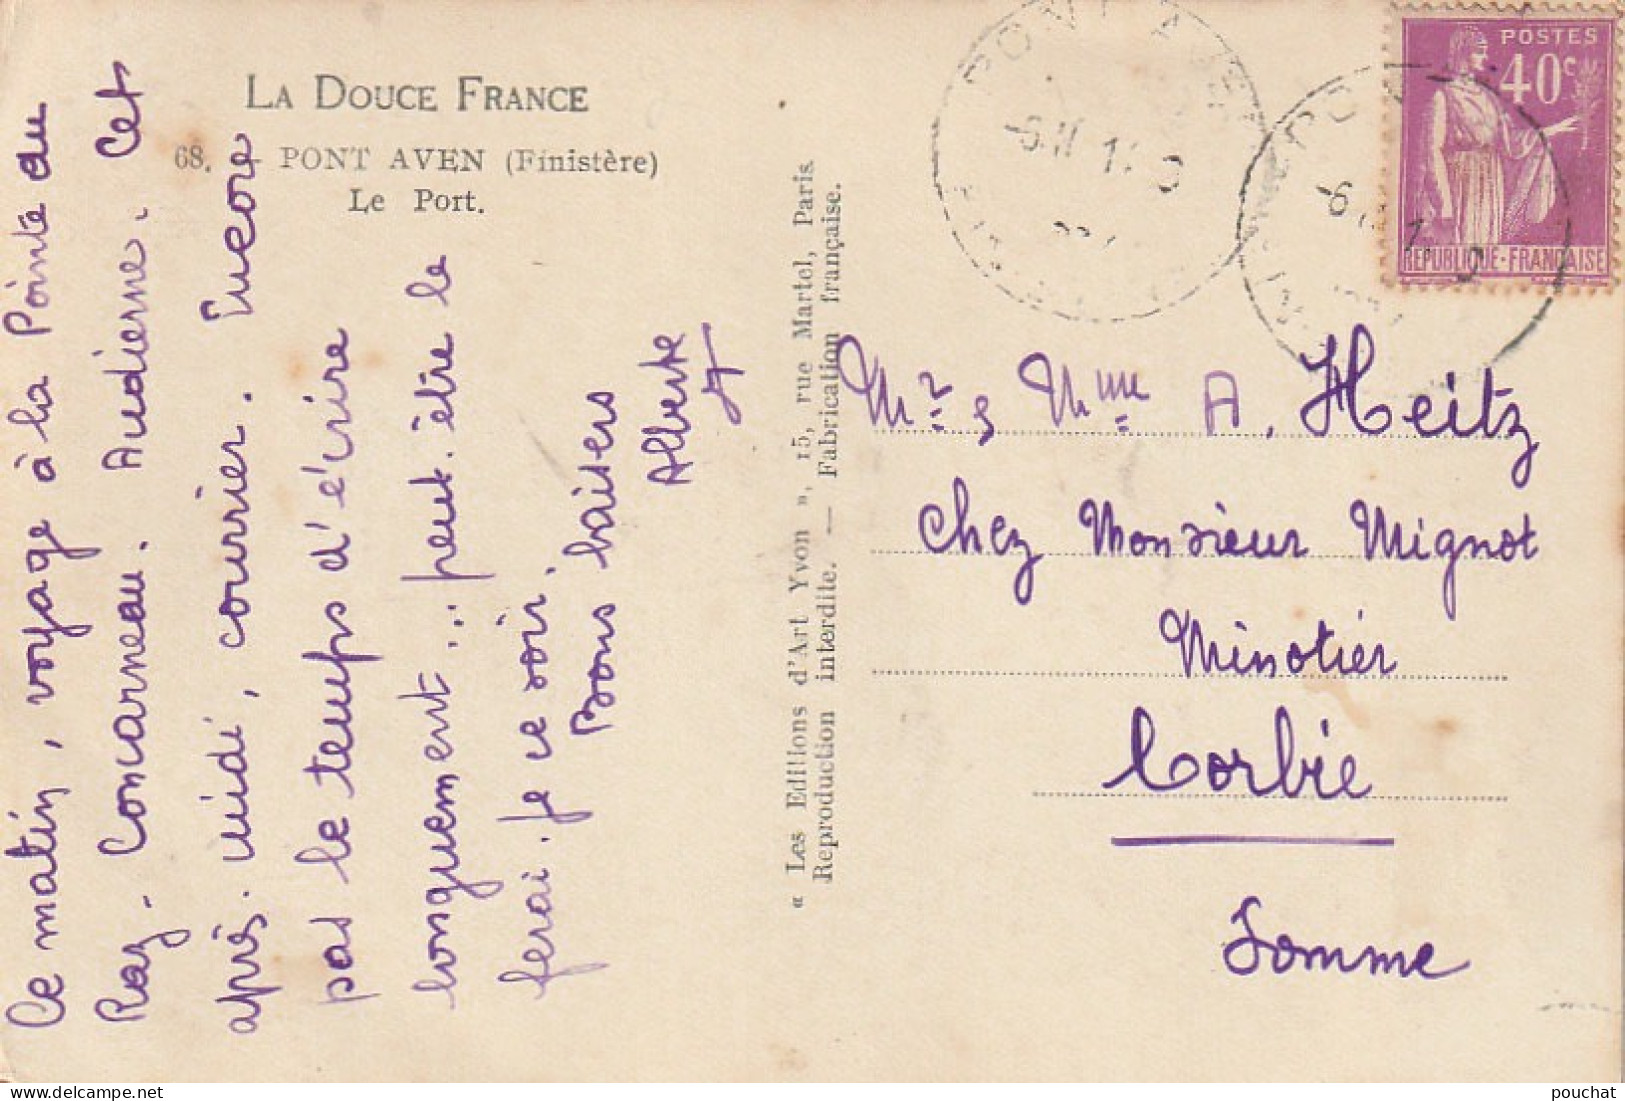 LA DOUCE FRANCE
68. - PONT AVEN (Finistère)
Le Port.
Ce matin, voyage à la Pointe du
Raz - Concarneau. Audierne. Cet
après-midi, courrier. Encore
pas le temps d'écrire
longuement... peut-être le
ferai-je ce soir.
Bons baisers
Alberte
« Les Editions d'Art Yvon », 15, rue Martel, Paris
Reproduction interdite. — Fabrication française.
POSTES
40c
REPUBLIQUE-FRANÇAISE
PONT AVEN
-6.
Mr & Mme A. Heitz
Chez Monsieur Mignot
Minotier
Corbie
Somme
pouchat